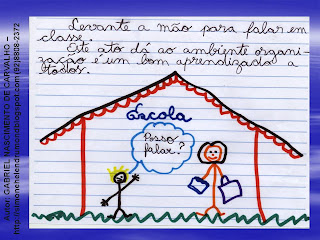 Levante a mão para falar em
classe.
Este ato dá ao ambiente organi-
zação e um bom aprendizado a
todos.
Escola
Posso
falar?
Autor: GABRIEL NASCIMENTO DE CARVALHO –